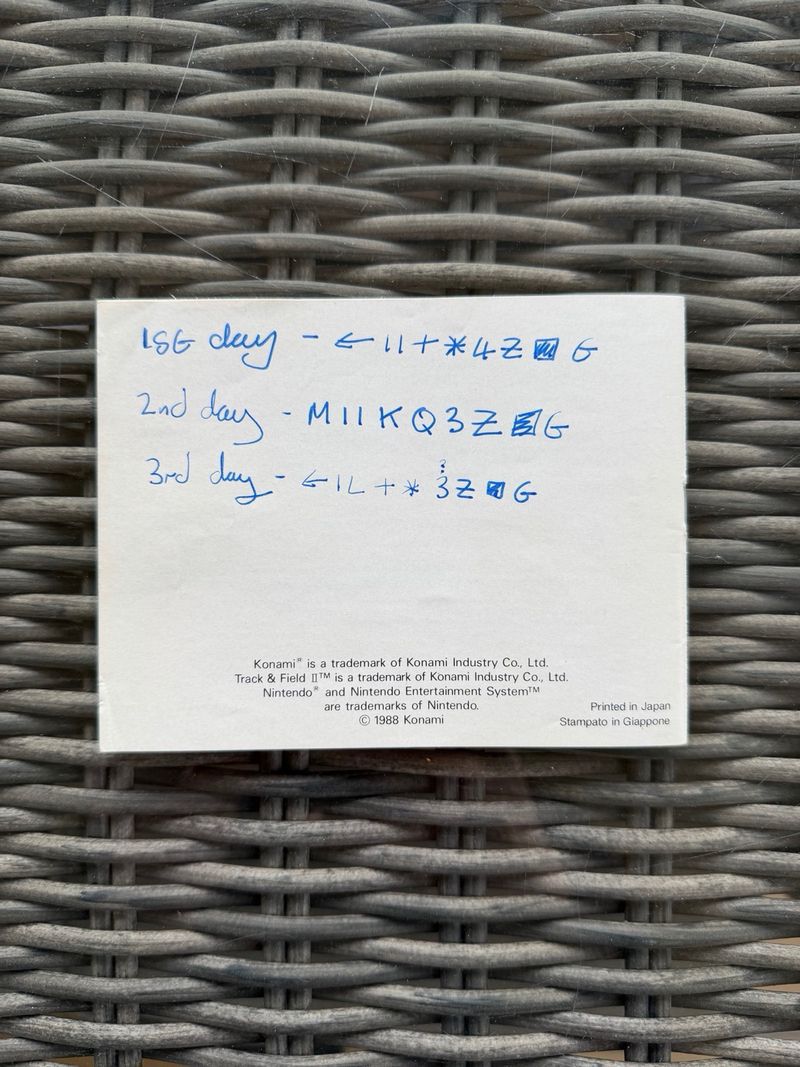 1st day - ← 11 + * 4 Z ■ G
2nd day - M 11 K Q 3 Z ■ G
3rd day - ← 1L + * 3 Z ■ G
Konami® is a trademark of Konami Industry Co., Ltd.
Track & Field II™ is a trademark of Konami Industry Co., Ltd.
Nintendo® and Nintendo Entertainment System™
are trademarks of Nintendo.
© 1988 Konami
Printed in Japan
Stampato in Giappone